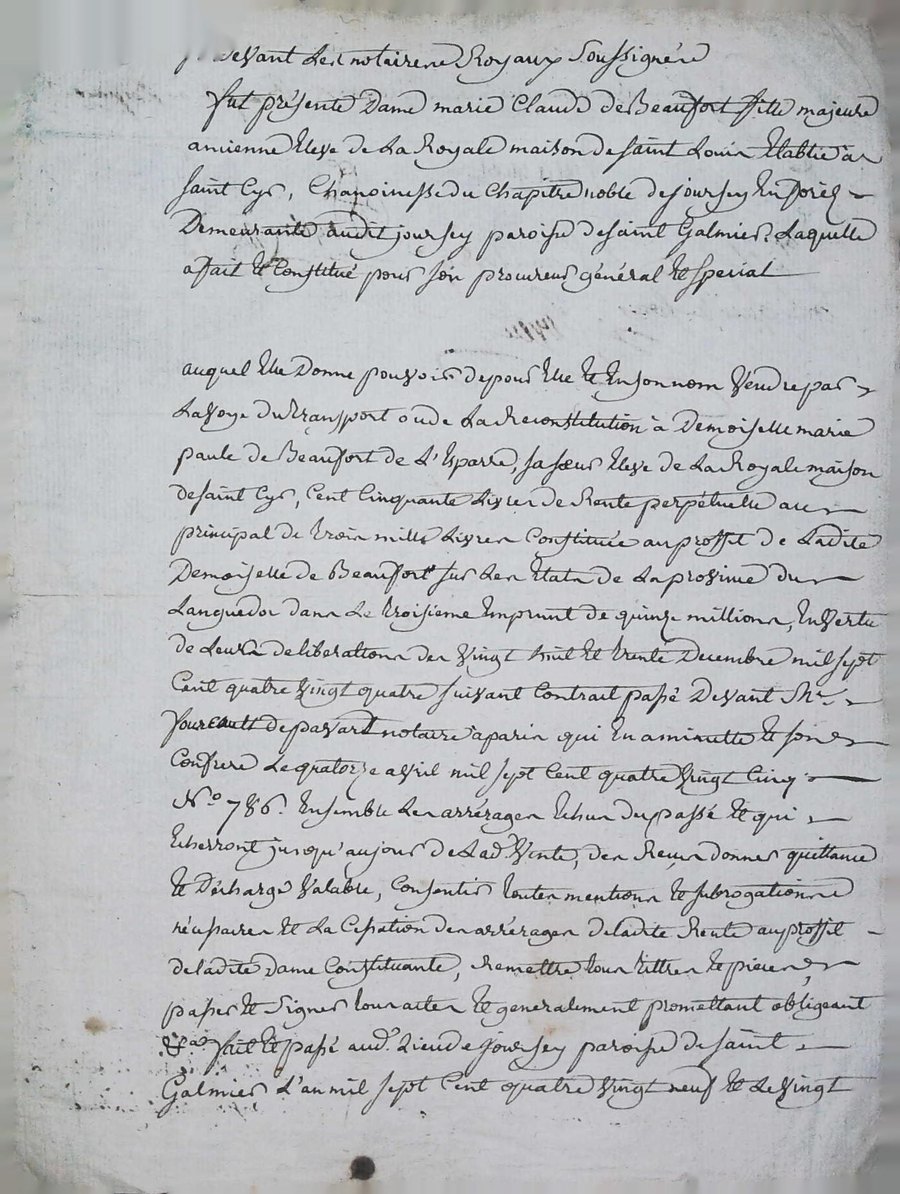 pardevant Les notaires Royaux Soussignés
fut présente Dame marie Claude de Beaufort fille majeure
ancienne Eleve de La Royale maison de saint Louis Etablie a
saint Cyr, Chanoinesse du Chapitre noble de joursey En forez
Demeurante audit joursey paroisse de saint Galmier, Laquelle
a fait et Constitué pour son procureur général et special
auquel Elle Donne pouvoir de pour Elle et En son nom Vendre par
La voye du transport ou de La Reconstitution à Demoiselle marie
paule de Beaufort de L'Esparre, sa sœur Eleve de La Royale maison
de saint Cyr, Cent Cinquante Livres de Rente perpétuelle au
principal de trois mille Livres Constituée au proffit de Ladite
Demoiselle de Beaufort sur Les Etats de La province du
Languedoc dans Le troisieme Emprunt de quinze millions, En Vertu
de Leurs deliberations des vingt huit et trente Decembre mil sept
Cent quatre vingt quatre suivant Contrait passé Devant Me.
fourcault de pavant notaire a paris qui En a minutte et son
Confrere Le quatorze avril mil sept Cent quatre vingt Cinq
N.º 786. Ensemble Les arrérages Echus du passé et qui
Echerront jusqu'au jour de Lad. Vente, des Reçus donner quittance
et Décharge Valable, Consentir toutes mentions et subrogations
nécessaires et La Cessation des arrérages de ladite Rente au proffit
de ladite Dame Constituante, Remettre tous titres et pieces,
passer et Signer tous actes et generalement promettant obligeant
&. fait et passé aud. Lieu de joursey paroisse de saint
Galmier L'an mil sept Cent quatre vingt neuf et Le vingt